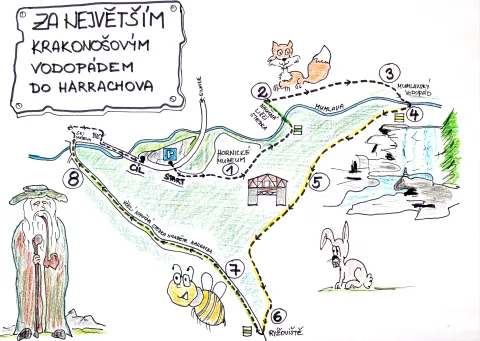 ZA NEJVĚTŠÍM
KRAKONOŠOVÝM
VODOPÁDEM
DO HARRACHOVA
2
3
MUMLAVSKÝ
VODOPÁD
4
MUMLAVA
SKI
MUZEUM
P
CÍL
START
HORNICKÉ
MUZEUM
1
5
8
7
6
RÝŽOVIŠTĚ